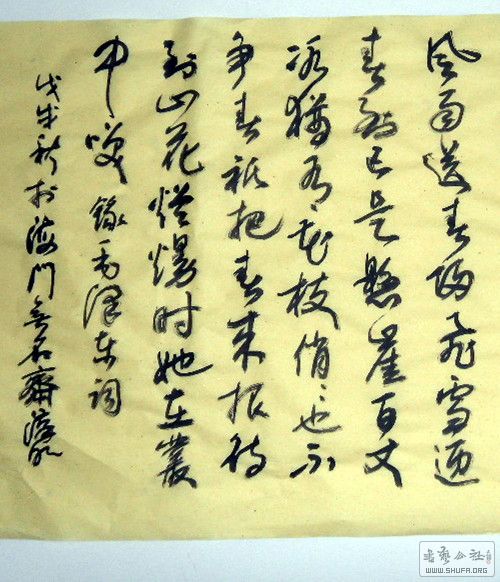 风雨送春归飞雪迎
春到已是悬崖百丈
冰犹有花枝俏〻也不
争春祇把春来报待
到山花烂熳时她在叢
中咲 録毛泽东词
戊戌秋於海门無名齋
书艺公社
WWW.SHUFA.ORG